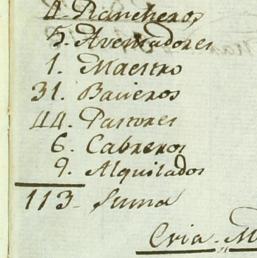 4. Rancheros
5. Aventadores
1. Maestro
31. Bacieros
44. Pastores
6. Cabreros
9. Alquilados
113. Suma
Cria.